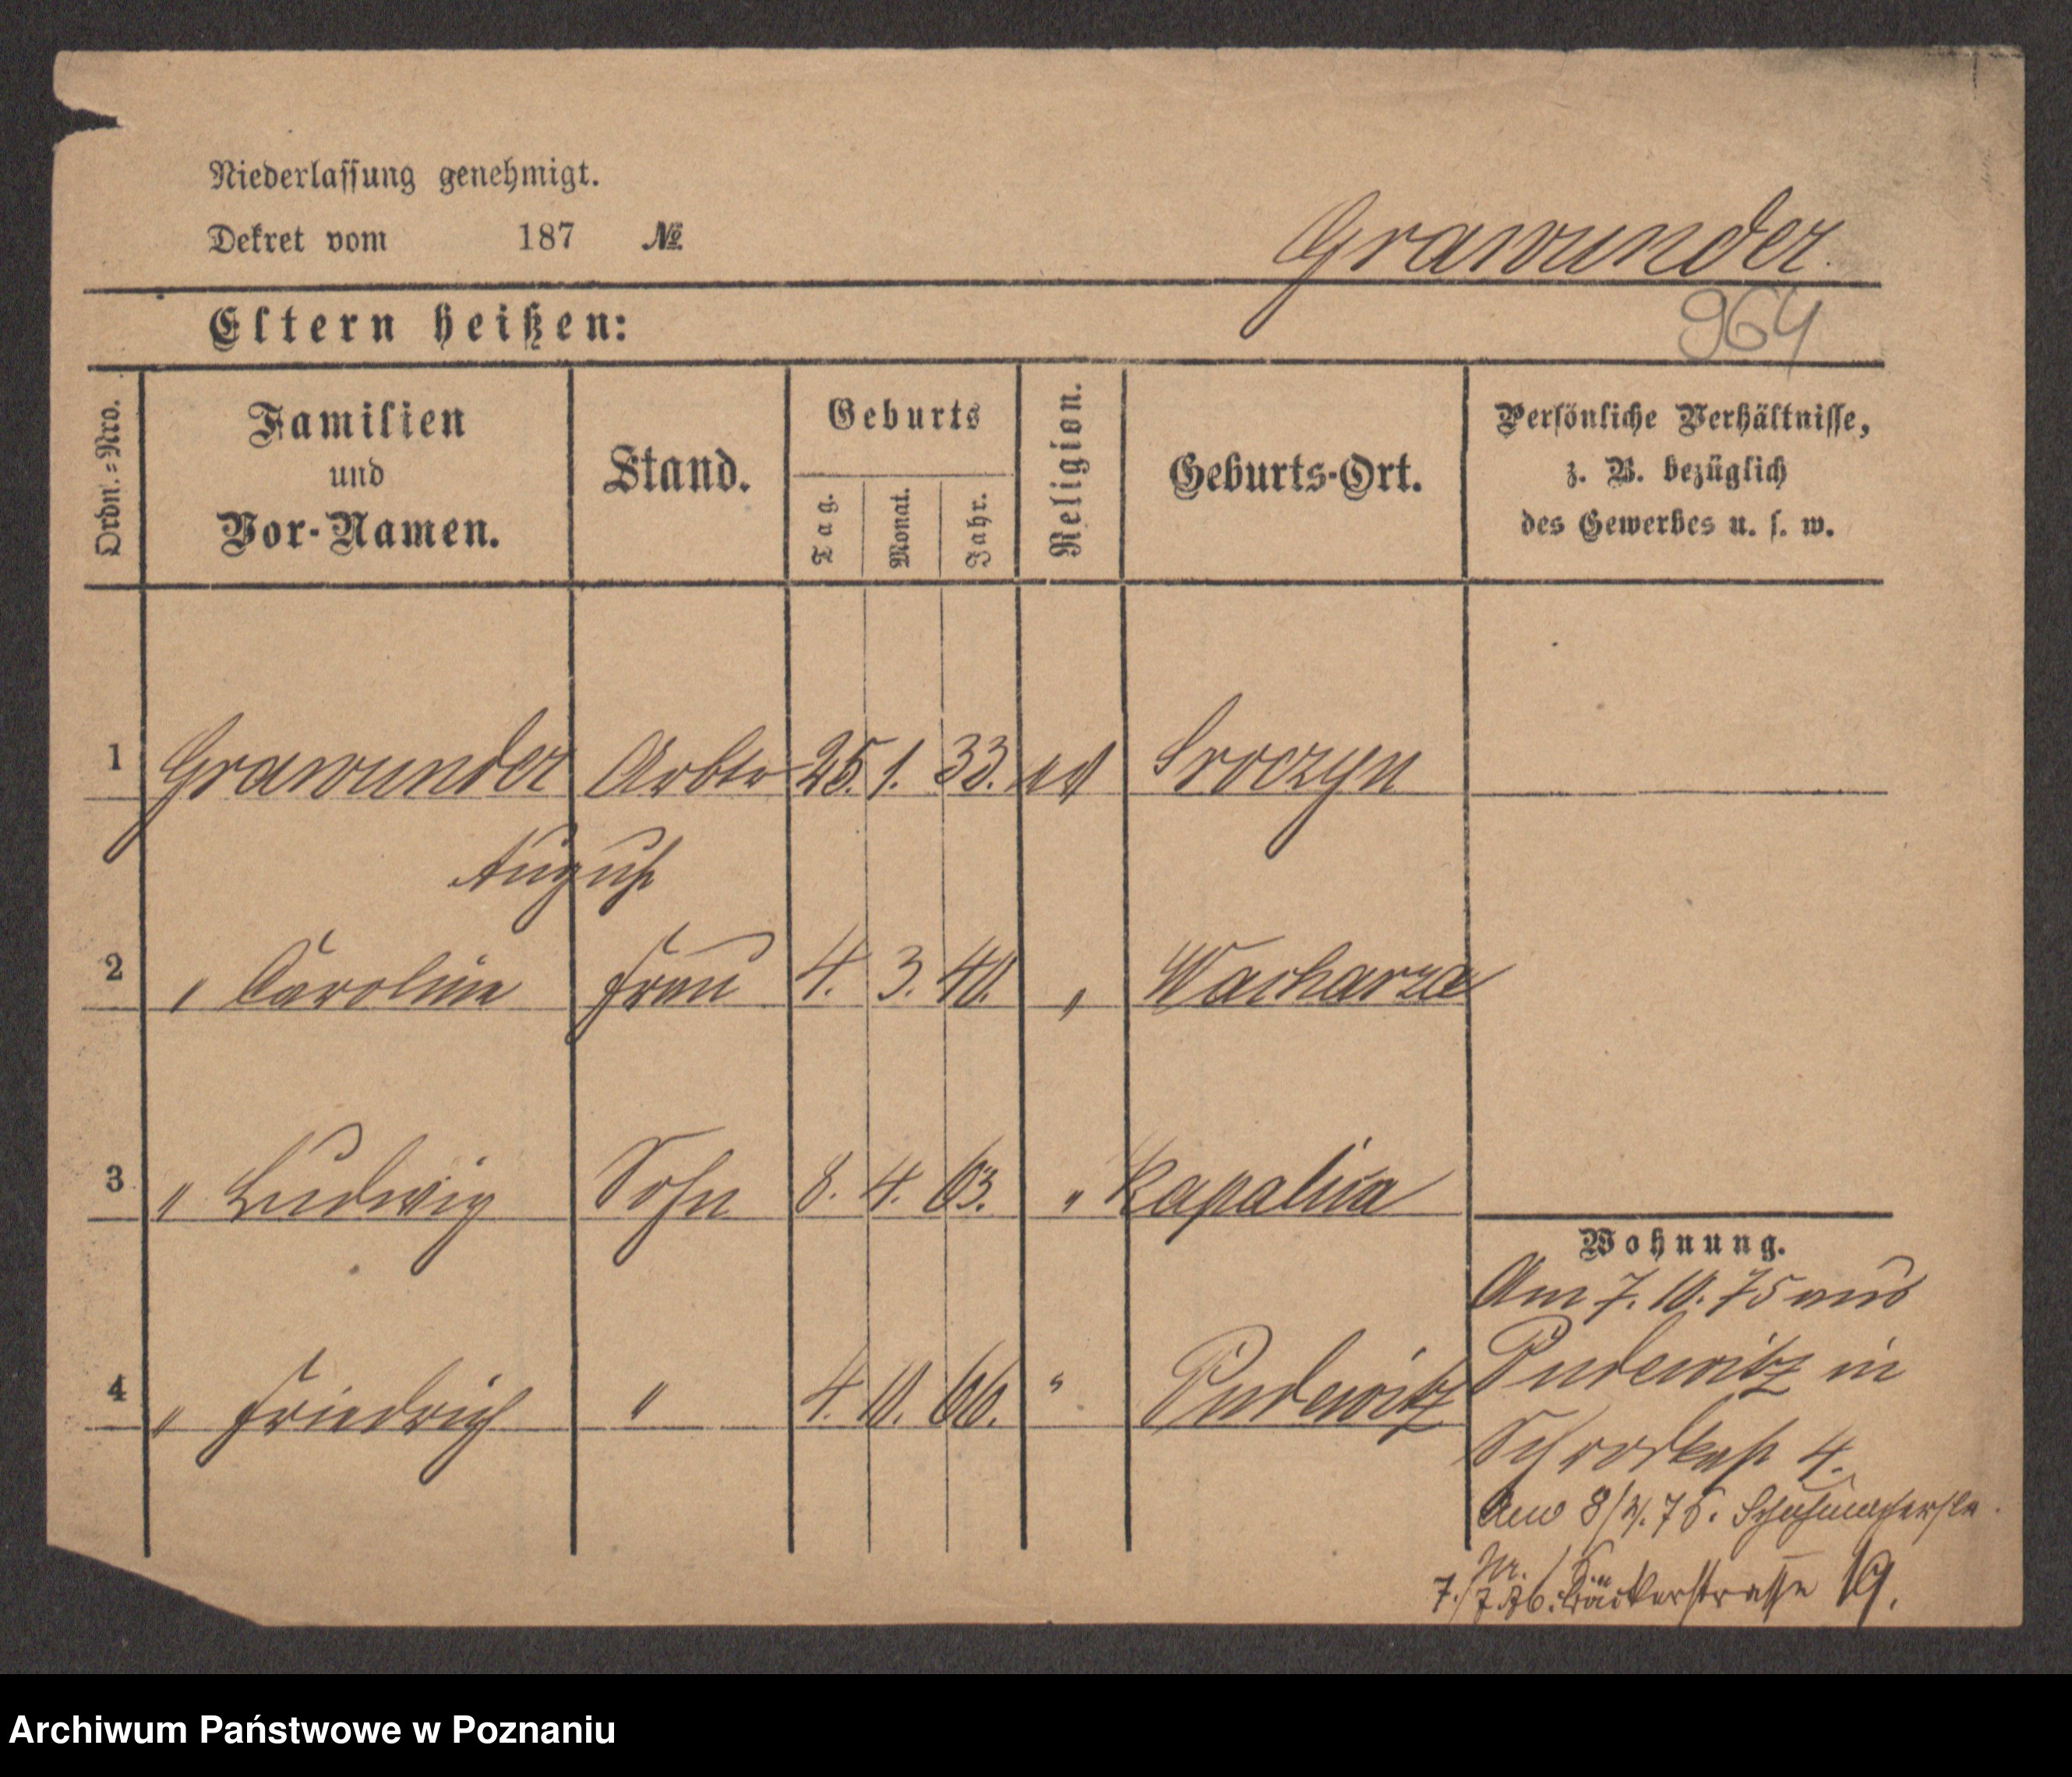 Niederlassung genehmigt.
Dekret vom 187 №
Grawunder.
Eltern heißen:
964
Ordn.=Nro.
Familien
und
Vor-Namen.
Stand.
Geburts
Tag.
Monat.
Jahr.
Religion.
Geburts-Ort.
Persönliche Verhältnisse,
z. B. bezüglich
des Gewerbes u. s. w.
1 Grawunder Arbtr 25. 1. 33. ev Sroczyn
August
2 " Caroline Frau 4. 3. 40. "
3 " Ludwig Sohn 8. 4. 63. " Kapalica
4 " Friedrich " 4. 10. 66. " Pudewitz
Wohnung.
Am 7. 10. 75 aus
Pudewitz in
Schrodkast 4.
Schuhmacherstr.
Nr.
Bäckerstrasse 19.
Archiwum Państwowe w Poznaniu